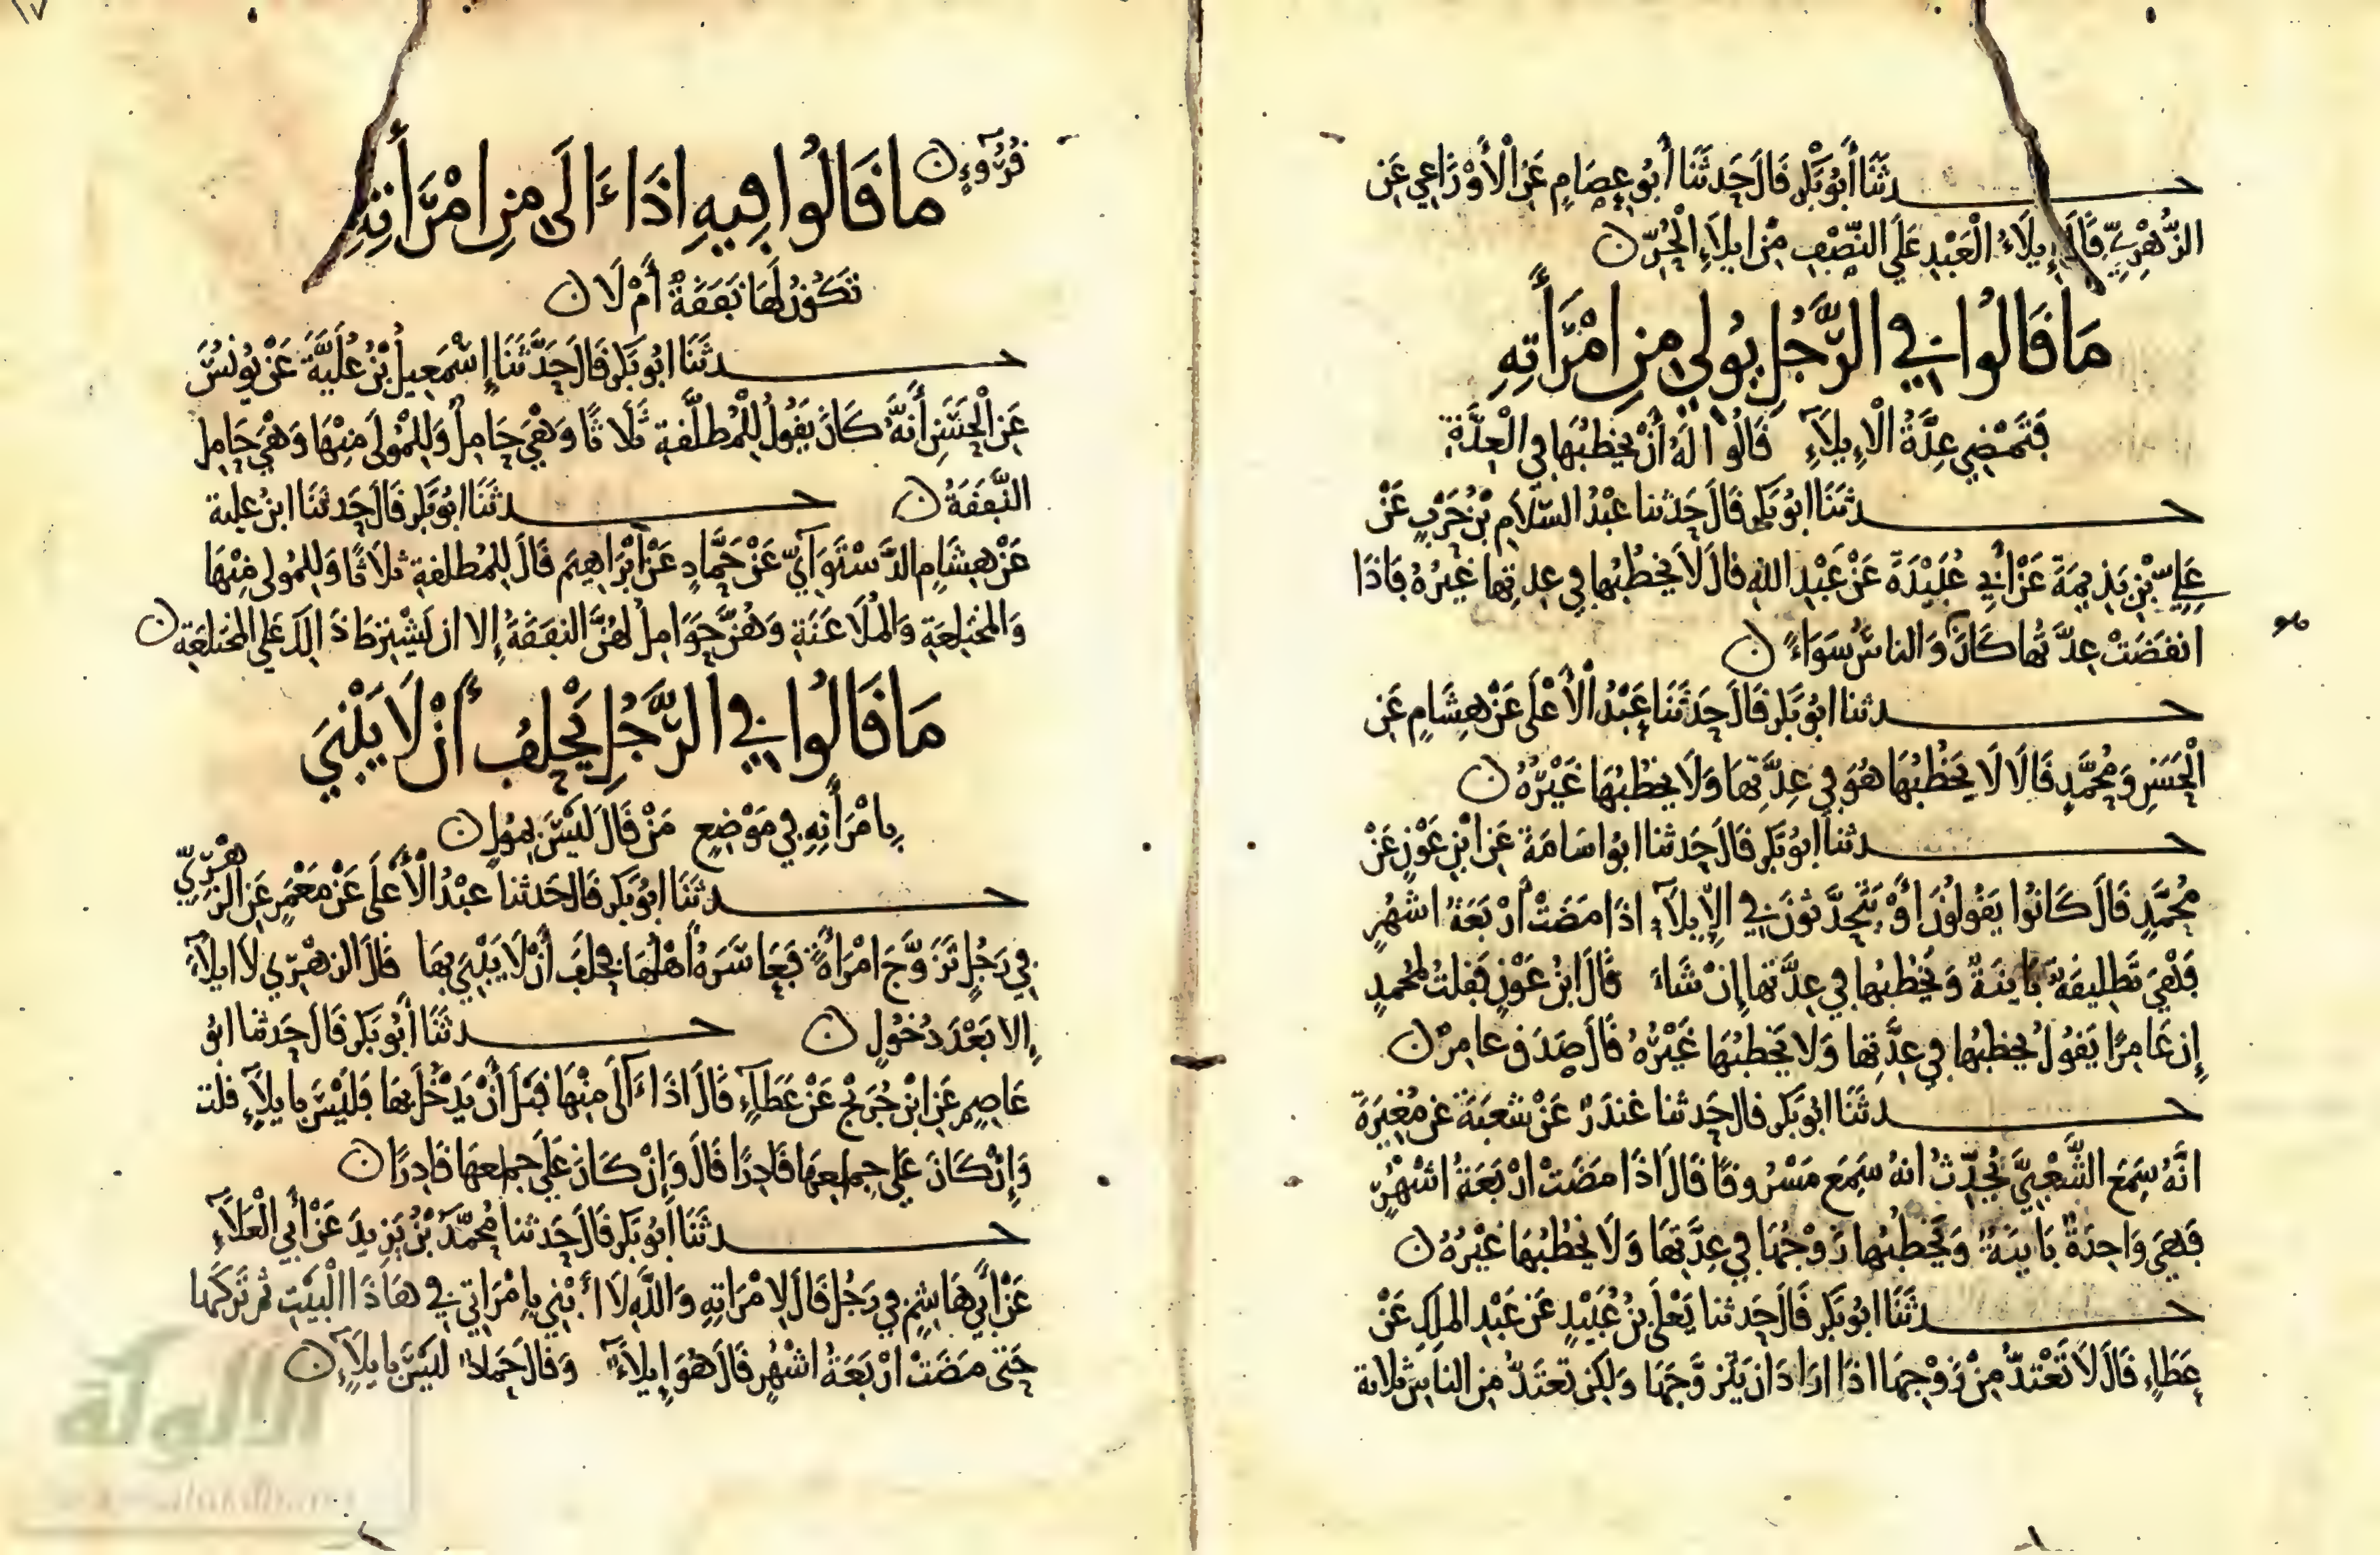 حدثنا أبو بكر قال حدثنا أبو عصام عن الأوزاعي عن
الزهري قال إيلاء العبد على النصف من إيلاء الحر ن
ما قالوا في الرجل يولي من امرأته
فتمضي عدة الإيلاء قالوا له أن يخطبها في العدة
حدثنا ابو بكر قال حدثنا عبد السلام بن حرب عن
علي بن بذيمة عن أبي عبيدة عن عبد الله قال لا يخطبها في عدتها غيره فاذا
انقضت عدتها كان والناس سواء ن
حدثنا ابو بكر قال حدثنا عبد الأعلى عن هشام عن
الحسن ومحمد قالا لا يخطبها هو في عدتها ولا يخطبها غيره ن
حدثنا أبو بكر قال حدثنا ابو اسامة عن ابن عون عن
محمد قال كانوا يقولون أو يتحدثون في الإيلاء اذا مضت أربعة اشهر
فهي تطليقة باينة ويخطبها في عدتها إن شاء قال ابن عون فقلت لمحمد
إن عامرا يقول يخطبها في عدتها ولا يخطبها غيره قال صدق عامر ن
حدثنا ابو بكر قال حدثنا غندر عن شعبة عن مغيرة
انه سمع الشعبي يحدث انه سمع مسروقا قال اذا مضت اربعة اشهر
فهي واحدة باينة ويخطبها زوجها في عدتها ولا يخطبها غيره ن
حدثنا ابو بكر قال حدثنا يعلى بن عبيد عن عبد الملك عن
عطاء قال لا تعتد من زوجها اذا اراد ان يتزوجها ولكن تعتد من الناس ثلاثة
قروء ن
ما قالوا فيه اذا ءالى من امرأته
تكون لها نفقة أم لا ن
حدثنا ابو بكر قال حدثنا إسمعيل بن علية عن يونس
عن الحسن أنه كان يقول للمطلقة ثلاثا وهي حامل وللمولى منها وهي حامل
النفقة ن حدثنا ابو بكر قال حدثنا ابن علية
عن هشام الدستوآي عن حماد عن ابراهيم قال للمطلقة ثلاثا وللمولى منها
والمختلعة والملاعنة وهن حوامل لهن النفقة إلا ان يشترط ذالك على المختلعة ن
ما قالوا في الرجل يحلف أن لا يبني
بامرأته في موضع من قال ليس بمول ن
حدثنا ابو بكر قال حدثنا عبد الأعلى عن معمر عن الزهري
في رجل تزوج امرأة فعاسره أهلها فحلف أن لا يبني بها قال الزهري لا ايلاء
إلا بعد دخول ن حدثنا أبو بكر قال حدثنا ابو
عاصم عن ابن جريج عن عطاء قال اذا ءالى منها قبل أن يدخل بها فليس بايلاء قلت
وإن كان على جماعها قادرا قال وإن كان على جماعها قادرا ن
حدثنا أبو بكر قال حدثنا محمد بن يزيد عن أبي العلاء
عن أبي هاشم في رجل قال لامراته والله لا أبني بامراتي في هاذا البيت ثم تركها
حتى مضت اربعة اشهر قال هو إيلاء وقال حماد ليس بايلاء ن
الألوكة